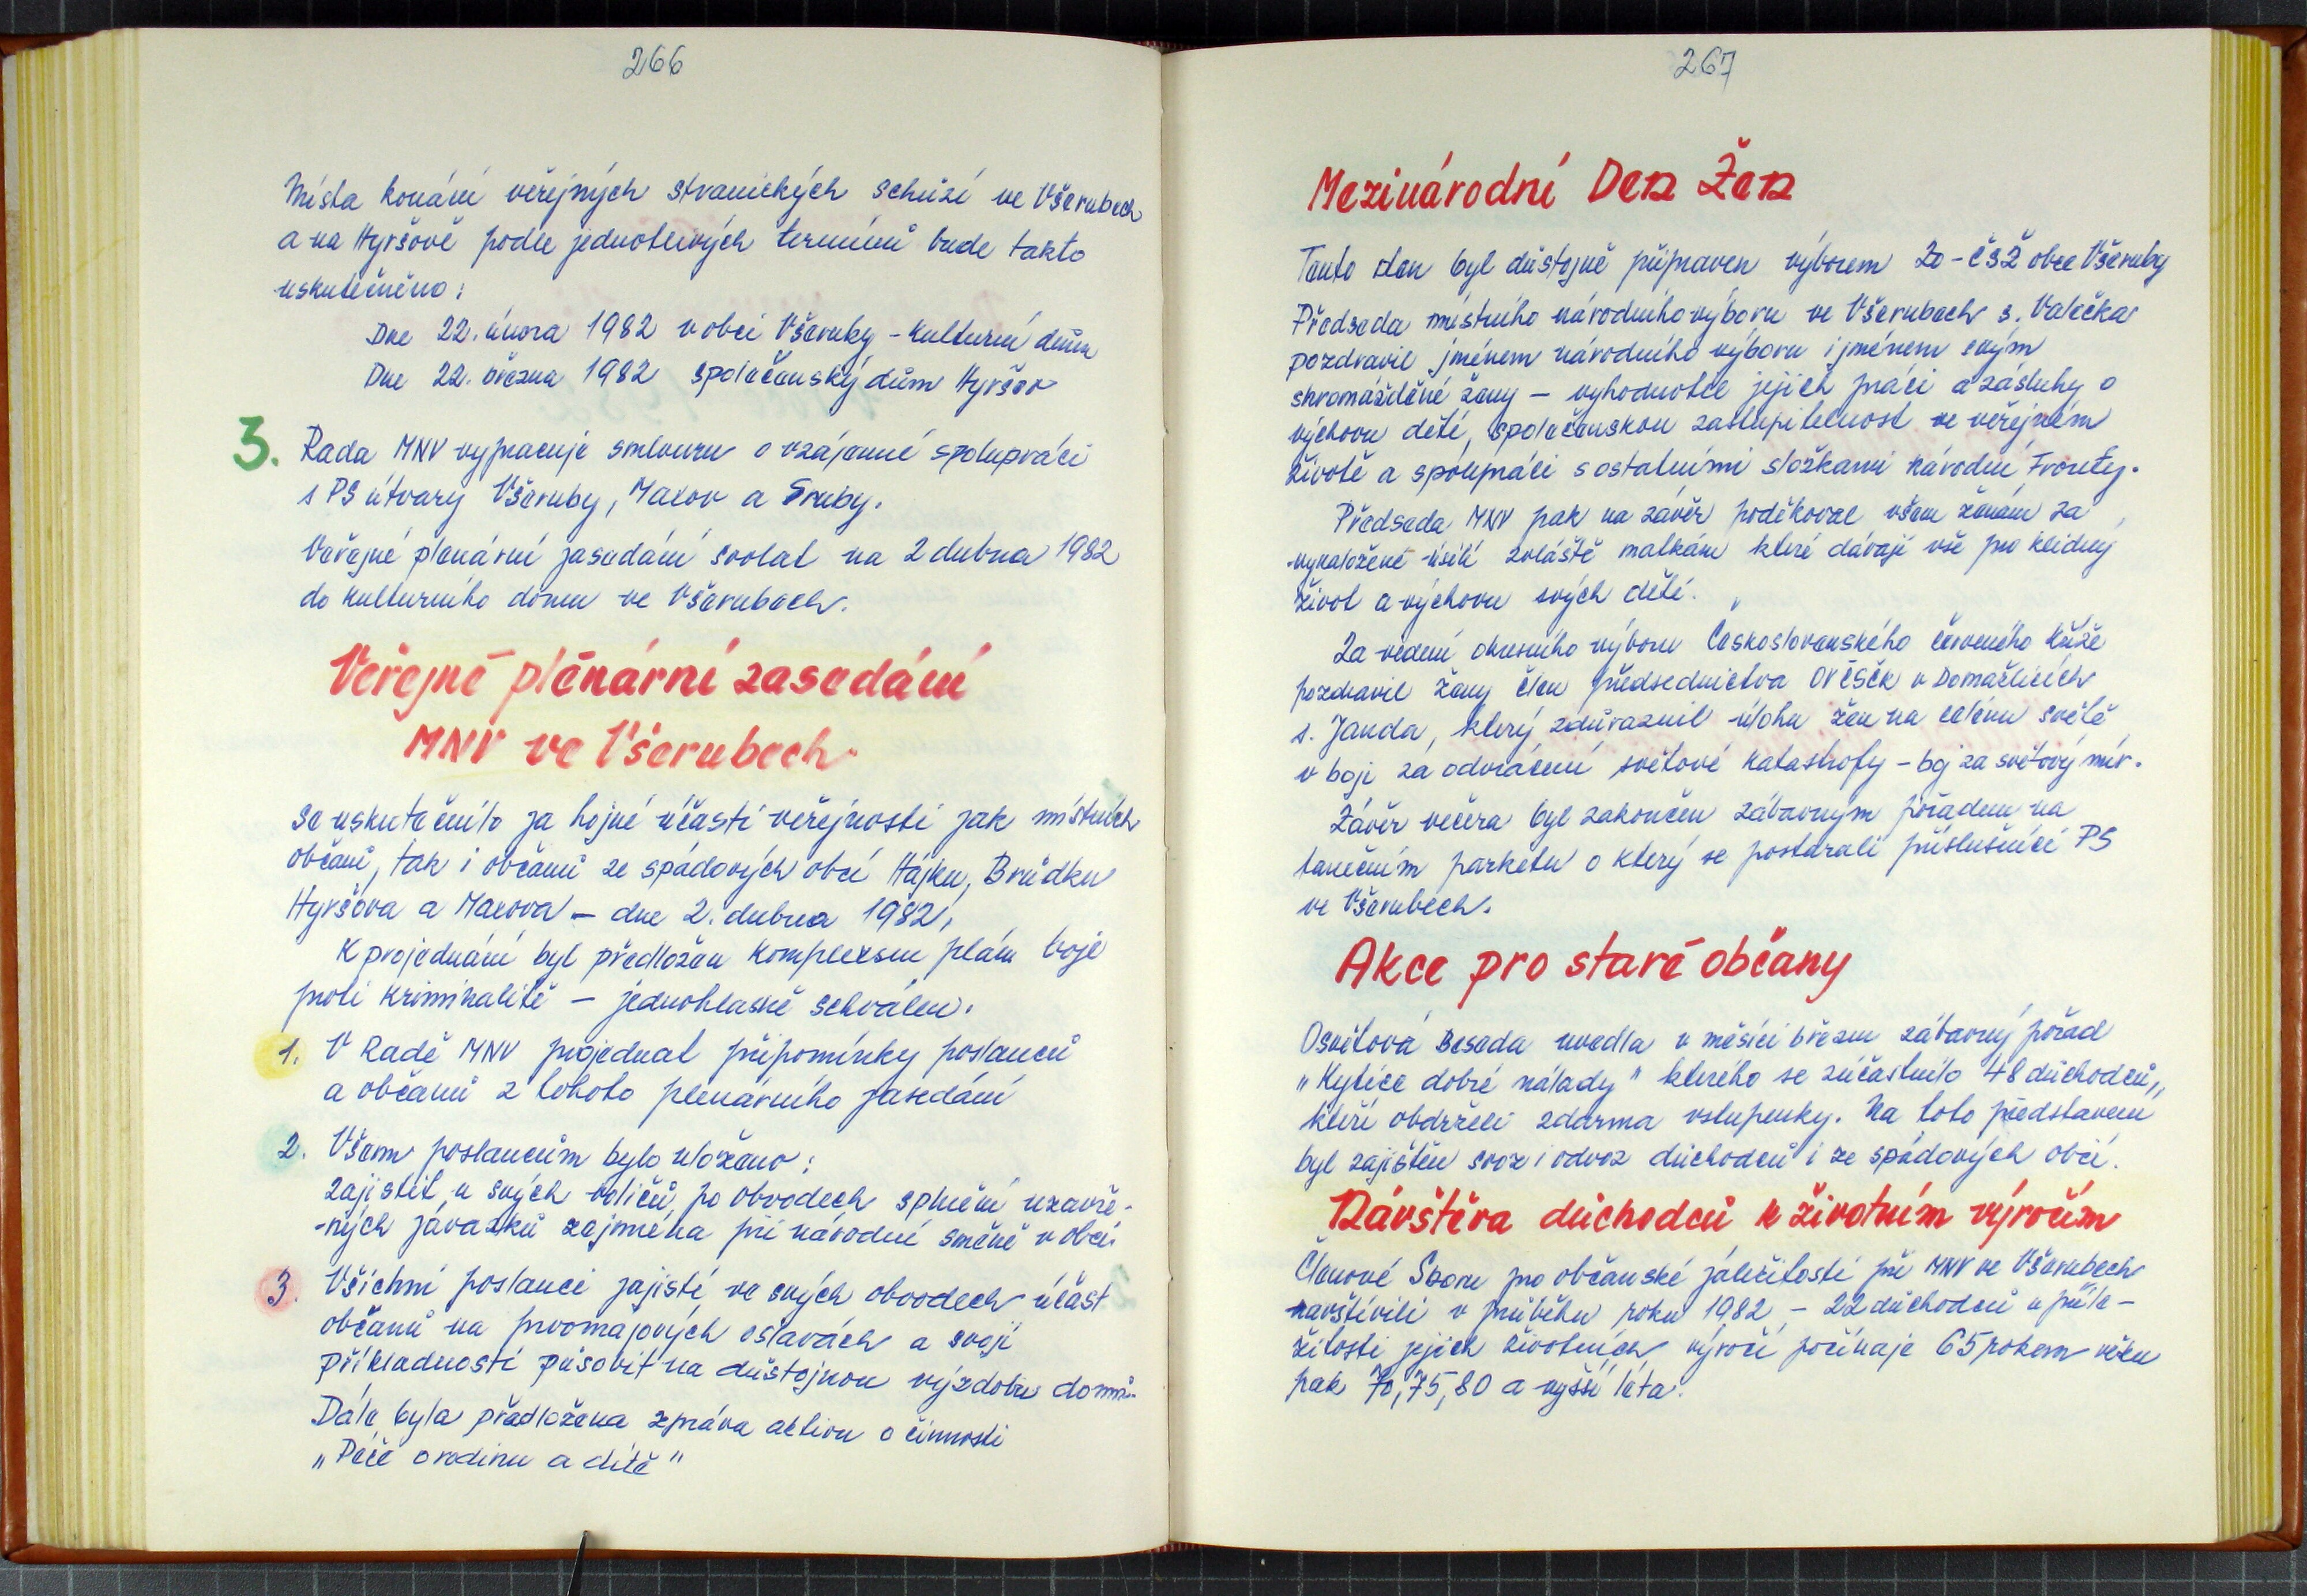 266
Místa konání veřejných stranických schůzí ve Všerubech
a na Hyršově podle jednotlivých termínů bude takto
uskutečněno:
Dne 22. února 1982 v obci Všeruby - Kulturní dům
Dne 22. března 1982 společenský dům Hyršov
3. Rada MNV vypracuje smlouvu o vzájemné spolupráci
s PS útvary Všeruby, Maxov a Sruby.
Veřejné plenární zasedání svolat na 2 dubna 1982
do Kulturního domu ve Všerubech.
Veřejné plénární zasedání
MNV ve Všerubech
se uskutečnilo za hojné účasti veřejnosti jak místních
občanů, tak i občanů ze spádových obcí Hájku, Brůdku
Hyršova a Maxova - dne 2. dubna 1982,
K projednání byl předložen komplexní plán boje
proti kriminalitě - jednohlasně schválen.
1. V Radě MNV projednat připomínky poslanců
a občanů z tohoto plenárního zasedání
2. Všem poslancům bylo uloženo:
zajistit u svých voličů po obvodech splnění uzavře-
-ných závazků zejména při národní směně v obci.
3. Všichni poslanci zajistí ve svých obvodech účast
občanů na prvomajových oslavách a svojí
příkladností působit na důstojnou výzdobu domů.
Dále byla předložena zpráva aktivu o činnosti
„Péče o rodinu a dítě"
267
Mezinárodní Den Žen
Tento den byl důstojně připraven výborem ZO - ČSŽ obce Všeruby
Předseda místního národního výboru ve Všerubech s. Valečka
pozdravil jménem národního výboru i jménem svým
shromážděné ženy - vyhodnotil jejich práci a zásluhy o
výchovu dětí, společenskou zastupitelnost ve veřejném
životě a spolupráci s ostatními složkami Národní Fronty.
Předseda MNV pak na závěr poděkoval všem ženám za
vynaložené úsilí zvláště matkám které dávají vše pro klidný
život a výchovu svých dětí.
Za vedení okresního výboru Československého červeného kříže
pozdravil ženy člen předsednictva OVČSČK v Domažlicích
s. Janda, který zdůraznil úlohu žen na celém světě
v boji za odvrácení světové katastrofy - boj za světový mír.
Závěr večera byl zakončen zábavným pořadem na
tanečním parketu o který se postarali příslušníci PS
ve Všerubech.
Akce pro staré občany
Osvětová Beseda uvedla v měsíci březnu zábavný pořad
„Kytice dobré nálady" kterého se zúčastnilo 48 důchodců,
kteří obdrželi zdarma vstupenky. Na toto představení
byl zajištěn svoz i odvoz důchodců i ze spádových obcí.
Návštěva důchodců k životním výročím
Členové Sboru pro občanské záležitosti při MNV ve Všerubech
navštívili v průběhu roku 1982 - 22 důchodců u příle-
žitosti jejich životních výročí počínaje 65 rokem věku
pak 70, 75, 80 a vyšší léta.